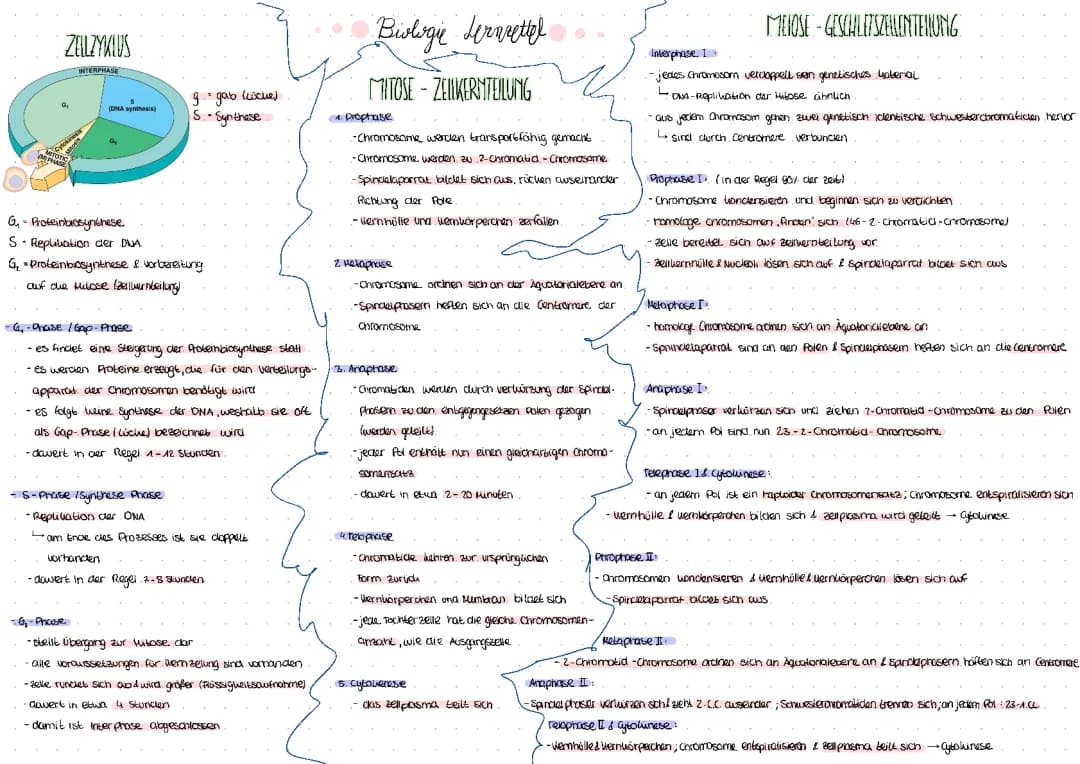 Biologie Lernzettel
ZELLZYKLUS
INTERPHASE
G₁
S
(DNA synthesis)
G₂
Cytokinesis
Mitosis
MITOTIC
(M) PHASE
g = gab (Lücke)
S = Synthese
G₁ = Proteinbiosynthese
S = Replikation der DNA
G₂ = Proteinbiosynthese & Vorbereitung
auf die Mitose (Zellkernteilung)
- G₁ - Phase / Gap - Phase
- es findet eine Steigerung der Proteinbiosynthese statt
- es werden Proteine erzeugt, die für den Verteilungs-
apparat der Chromosomen benötigt wird
- es folgt keine Synthese der DNA, weshalb sie oft
als Gap-Phase (Lücke) bezeichnet wird
- dauert in der Regel 1-12 Stunden
- S - Phase / Synthese Phase
- Replikation der DNA
↳ am Ende des Prozesses ist sie doppelt
vorhanden
- dauert in der Regel 7-8 Stunden
- G₂ - Phase
- stellt Übergang zur Mitose dar
- alle Voraussetzungen für Kernteilung sind vorhanden
- Zelle rundet sich ab & wird größer (Flüssigkeitsaufnahme)
- dauert in etwa 4 Stunden
- damit ist Interphase abgeschlossen
MITOSE - ZELLKERNTEILUNG
1. Prophase
- Chromosome werden transportfähig gemacht
- Chromosome werden zu 2-Chromatid-Chromosome
- Spindelapparat bildet sich aus, rücken auseinander
Richtung der Pole
- Kernhülle und Kernkörperchen zerfallen
2. Metaphase
- Chromosome ordnen sich an der Äquatorialebene an
- Spindelphasern heften sich an die Centromere der
Chromosome
3. Anaphase
- Chromatiden werden durch Verkürzung der Spindel-
phasern zu den entgegengesetzen Polen gezogen
(werden geteilt)
- jeder Pol enthält nun einen gleichartigen Chromo-
somensatz
- dauert in etwa 2-20 Minuten
4. Telophase
- Chromatide kehren zur ursprünglichen
Form zurück
- Kernkörperchen und Membran bildet sich
- jede Tochterzelle hat die gleiche Chromosomen-
anzahl, wie die Ausgangszelle
5. Cytokinese
- das Zellplasma teilt sich
MEIOSE - GESCHLECHTSZELLENTEILUNG
Interphase I
- jedes Chromosom verdoppelt sein genetisches Material
↳ DNA-Replikation der Mitose ähnlich
- aus jedem Chromosom gehen zwei genetisch identische Schwesterchromatiden hervor
↳ sind durch Centromere verbunden
Prophase I: (in der Regel 90% der Zeit)
- Chromosome kondensieren und beginnen sich zu verdichten
- homologe Chromosomen „finden" sich (46-2-Chromatid-Chromosome)
- Zelle bereitet sich auf Zellkernteilung vor
- Zellkernhülle & Nucleoli lösen sich auf & Spindelapparat bildet sich aus
Metaphase I:
- homologe Chromosome ordnen sich an Äquatorialebene an
- Spnindelapparat sind an den Polen & Spindelphasern heften sich an die Centromere
Anaphase I:
- Spindelphaser verkürzen sich und ziehen 2-Chromatid-Chromosome zu den Polen
- an jedem Pol sind nun 23-2-Chromatid-Chromosome
Telephase I & Cytokinese:
- an jedem Pol ist ein haploider Chromosomensatz; Chromosome entspiralisieren sich
- Kernhülle & Kernkörperchen bilden sich & Zellplasma wird geteilt → Cytokinese
Prophase II:
- Chromosomen kondensieren & Kernhülle & Kernkörperchen lösen sich auf
- Spindelapparat bildet sich aus
Metaphase II:
- 2-Chromatid-Chromosome ordnen sich an Äquatorialebene an & Spindelphasern häften sich an Centromere
Anaphase II:
- Spindelphaser verkürzen sich & zieht 2.C.C. auseinder; Schwesterchromatiden trennen sich; an jedem Pol : 23-1.CC
Telophase II & Cytokinese:
- Kernhülle & Kernkörperchen; Chromosome entspiralisieren & Zellplasma teilt sich → Cytokinese